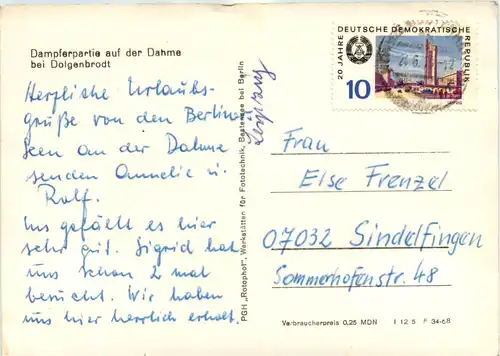 Dampferpartie auf der Dahme
bei Dolgenbrodt
Herzliche Urlaubs-
grüße von den Berliner
Seen an der Dahme
senden Annelie u.
Rolf.
Uns gefällt es hier
sehr gut. Sigrid hat
uns schon 2 mal
besucht. Wir haben
uns hier herrlich erholt.
PGH „Rotophot“, Werkstätten für Fototechnik, Bestensee bei Berlin
Leipzig
20 JAHRE DEUTSCHE DEMOKRATISCHE REPUBLIK
10
Frau
Else Frenzel
07032 Sindelfingen
Sommerhofenstr. 48
Verbraucherpreis 0,25 MDN I 12 5 F 34-68